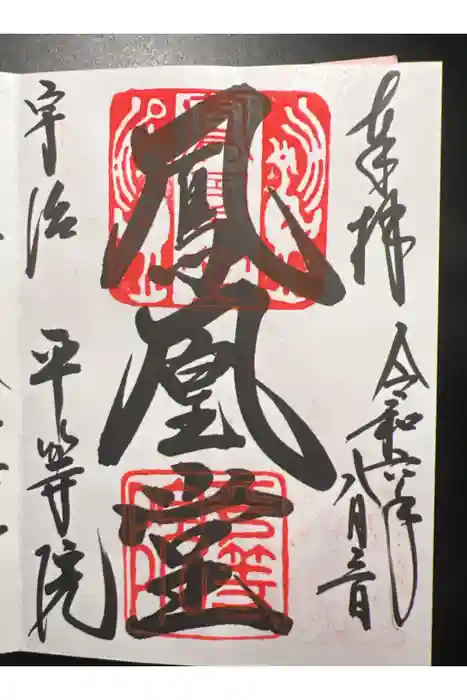 奉拝
令和六年
八月三日
鳳凰堂
宇治
平等院